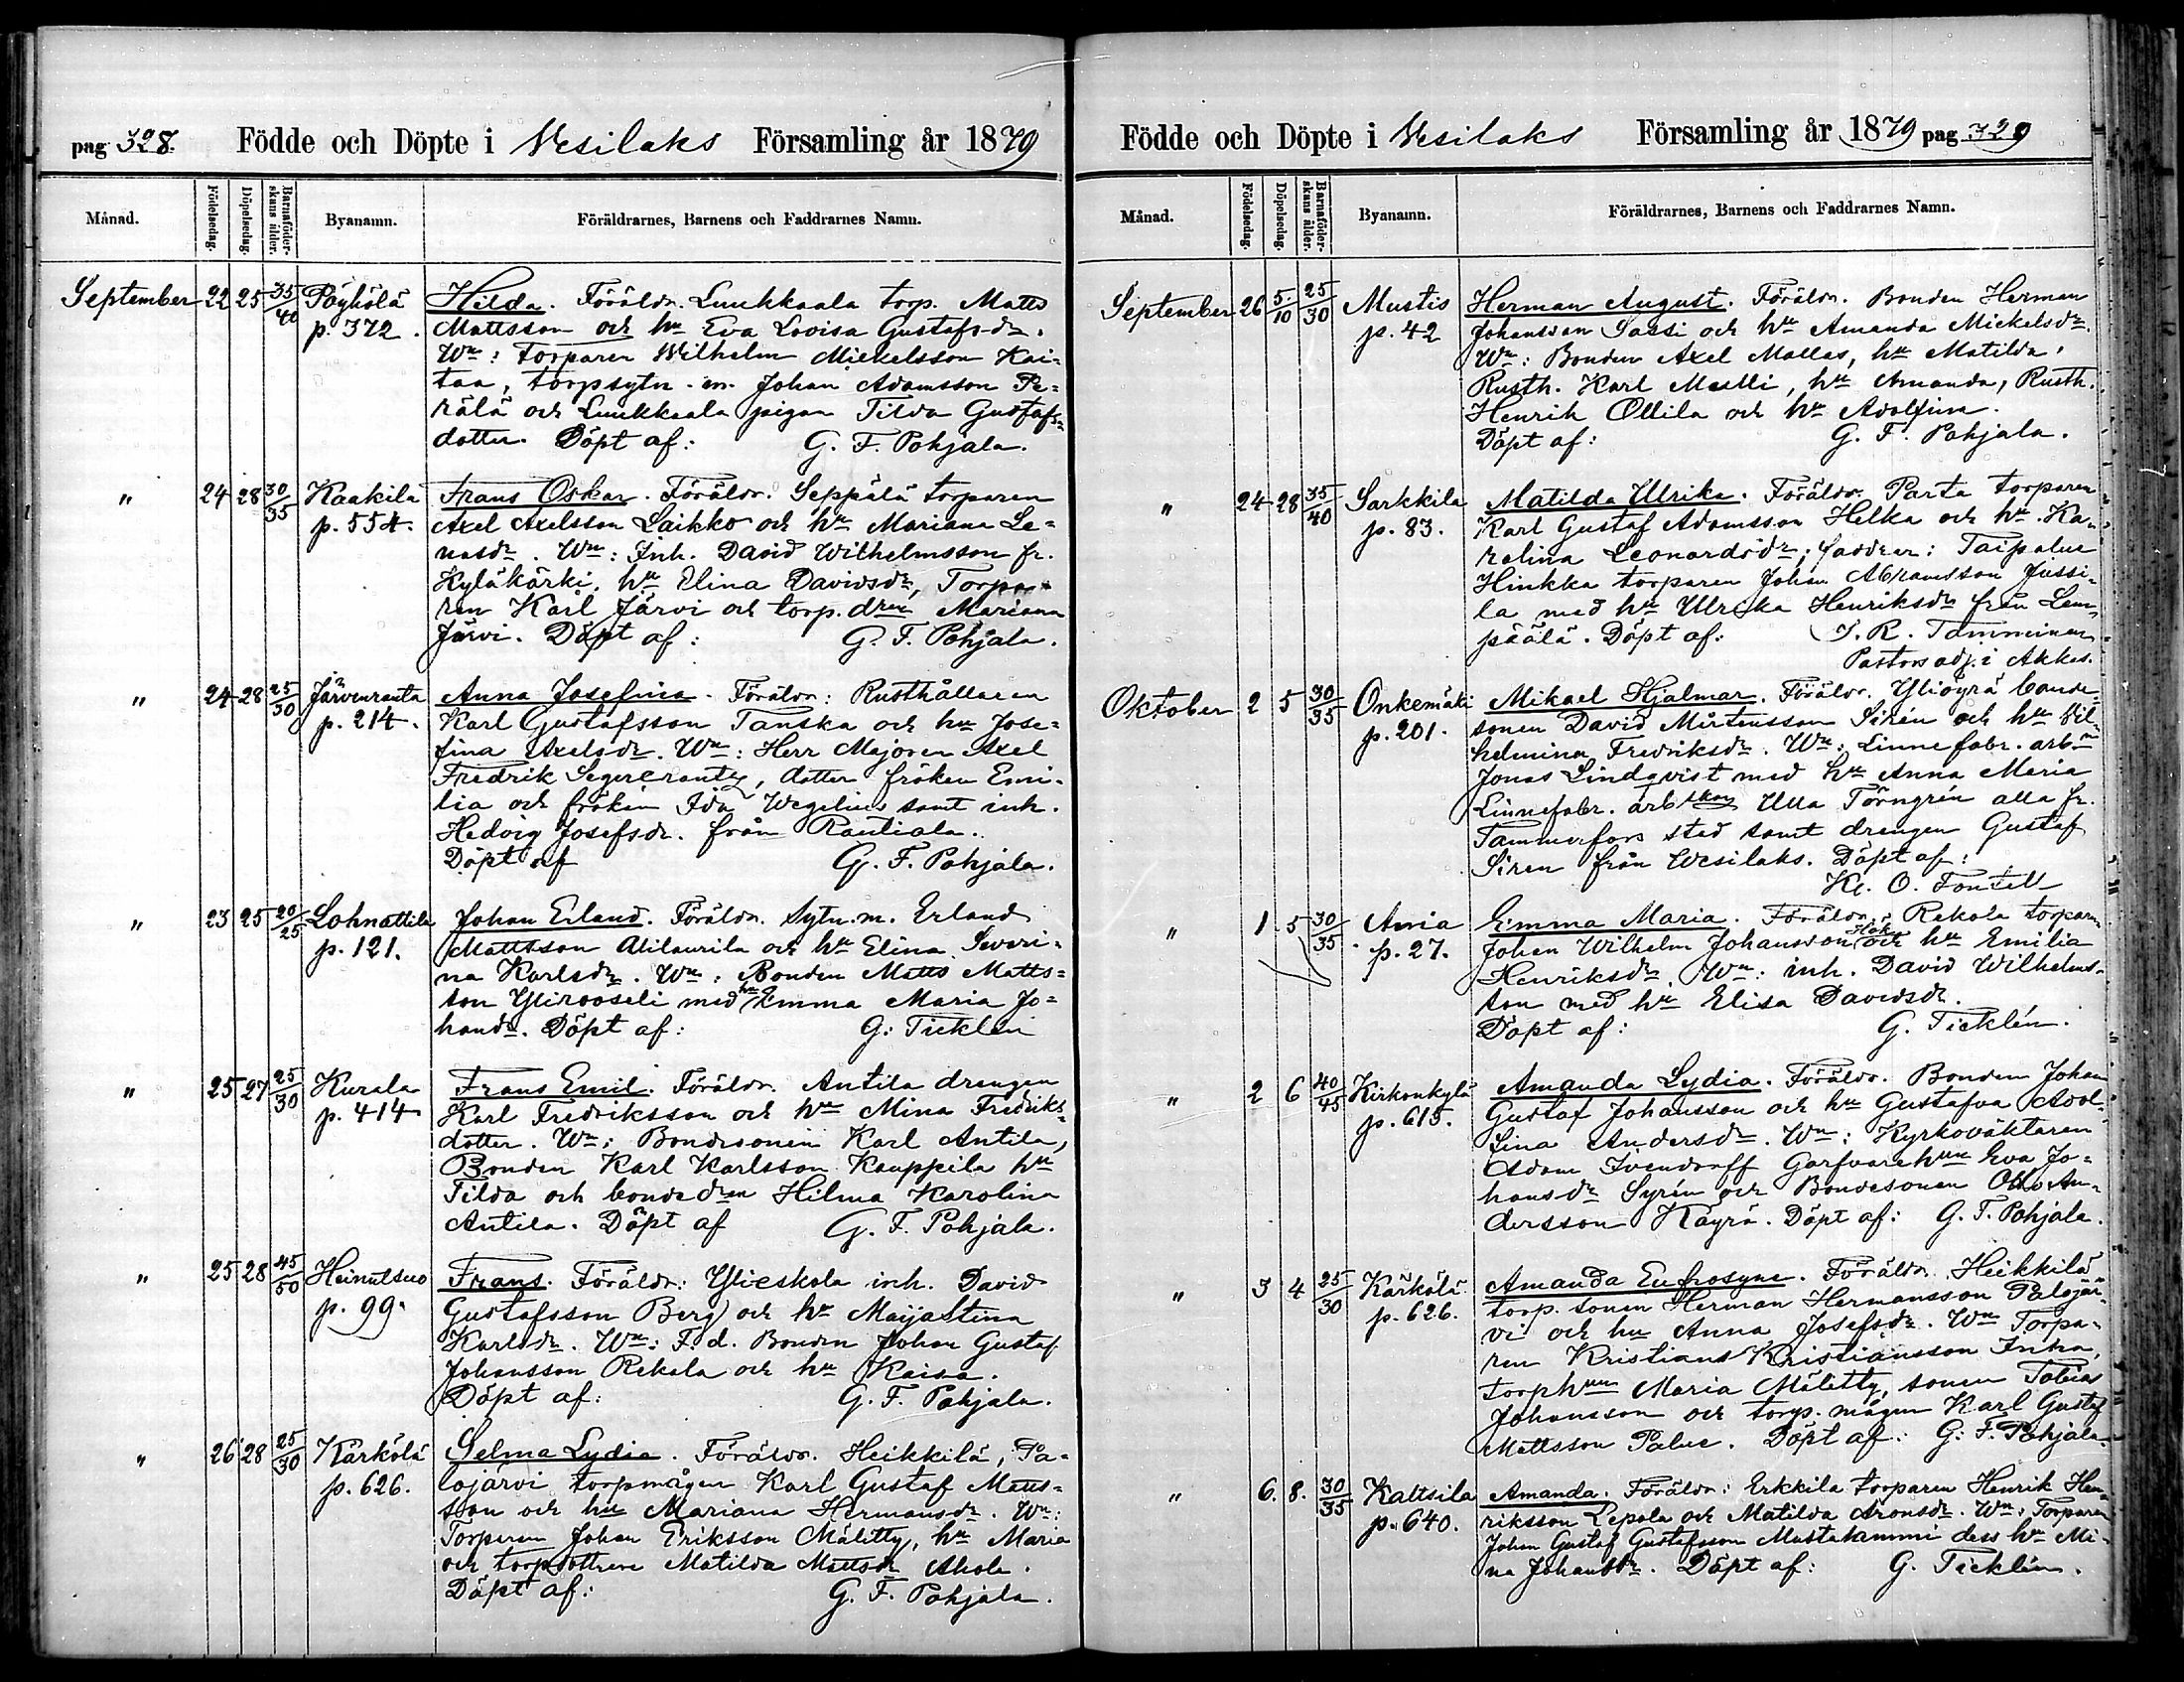 pag 328. Födde och Döpte i Vesilaks Församling år 1879
Månad. Födelsedag. Döpelsedag. Barnaföderskans ålder. Byanamn. Föräldrarnes, Barnens och Faddrarnes Namn.
September 22 25 35/40 Pöyhölä Hilda. Föräldr. Luukkaala torp. Matts
p. 372. Mattsson och hu Eva Lovisa Gustafsdr.
Wn: Torparen Wilhelm Mickelsson Kai-
taa, torpsytn. m. Johan Adamsson Pe-
rälä och Luukkaala pigan Tilda Gustafs-
dotter. Döpt af: G. F. Pohjala.
" 24 28 30/35 Kaakila Frans Oskar. Föräldr. Seppälä torparen
p. 554. Axel Axelsson Laikko och hu Mariana Le-
nasdr. Wn: Inh. David Wilhelmsson fr.
Kyläkärki, hu Elina Davidsdr, Torpa-
ren Karl Järvi och torp. dren Mariana
Järvi. Döpt af: G. F. Pohjala.
" 24 28 25/30 Järvenranta Anna Josefina. Föräldr: Rusthållaren
p. 214. Karl Gustafsson Tanska och hu Jose-
fina Axelsdr. Wn: Herr Majoren Axel
Fredrik Segercrantz, dotter fröken Emi-
lia och fröken Ida Wegelius samt inh.
Hedvig Josefsdr. från Rautiala.
Döpt af G. F. Pohjala.
" 23 25 20/25 Lohnattila Johan Erland. Föräldr. Sytn. m. Erland
p. 121. Mattsson Alilaurila och hu Elina Severi-
na Karlsdr. Wn: Bonden Matts Matts-
son Ylirooseli med hu Emma Maria Jo-
hansdr. Döpt af: G. Ticklén
" 25 27 25/30 Kurala Frans Emil. Föräldr. Antila drengen
p. 414 Karl Fredriksson och hu Mina Fredriks-
dotter. Wn: Bondesonen Karl Antila,
Bonden Karl Karlsson Kauppila hu
Tilda och bondedren Hilma Karolina
Antila. Döpt af G. F. Pohjala.
" 25 28 45/50 Heinutsuo Frans. Föräldr: Ylieskola inh. David
p. 99. Gustafsson Berg och hu Maija Stina
Karlsdr. Wn: F.d. Bonden Johan Gustaf
Johansson Rekola och hu Kaisa.
Döpt af: G. F. Pohjala.
" 26 28 25/30 Kärkölä Selma Lydia. Föräldr. Heikkilä, Pa-
p. 626. lojärvi torpmågen Karl Gustaf Matts-
son och hu Mariana Hermansdr. Wn:
Torparen Johan Eriksson Mälitty, hu Maria
och torpdottren Matilda Mattsdr Ahola.
Döpt af: G. F. Pohjala.
Födde och Döpte i Vesilaks Församling år 1879 pag 329
Månad. Födelsedag. Döpelsedag. Barnaföderskans ålder. Byanamn. Föräldrarnes, Barnens och Faddrarnes Namn.
September 26 5/10 25/30 Mustis Herman August. Föräldr. Bonden Herman
p. 42 Johansson Sassi och hu Amanda Mickelsdr.
Wn: Bonden Axel Mallas, hu Matilda,
Rusth. Karl Mselli, hu Amanda, Rusth.
Henrik Ollila och hu Adolfina.
Döpt af: G. F. Pohjala.
" 24 28 35/40 Sarkkila Matilda Ulrika. Föräldr. Parta torparen
p. 83. Karl Gustaf Adamsson Helka och hu Ka-
rolina Leonardsdr; faddrar: Taipalue
Hinkka torparen Johan Abramsson Jussi-
la med hu Ulrika Henriksdr från Lem-
päälä. Döpt af: J. R. Tamminen
Pastors adj. i Akkas.
Oktober 2 5 30/35 Onkemäki Mikael Hjalmar. Föräldr. Yliöyrä bonde-
p. 201. sonen David Mårtensson Sirén och hu Vil-
helmina Fredriksdr. Wn: Linnefabr. arb.
Jonas Lindqvist med hu Anna Maria
Linnefabr. arbskan Ulla Törngrén alla fr.
Tammerfors stad samt drengen Gustaf
Siren från Wesilaks. Döpt af:
K. O. Fontell
" 1 5 30/35 Ania Emma Maria. Föräldr. Rekola torparen
p. 27. Johan Wilhelm Johansson Hök och hu Emilia
Henriksdr. Wn: inh. David Wilhelms-
son med hu Elisa Davidsdr.
Döpt af: G. Ticklén.
" 2 6 40/45 Kirkonkylä Amanda Lydia. Föräldr. Bonden Johan
p. 615. Gustaf Johansson och hu Gustafva Adol-
fina Andersdr. Wn: Kyrkovaktaren
Adam Ivendorff Garfvarehun Eva Jo-
hansdr Syrén och Bondesonen Otto An-
dersson Käyrä. Döpt af: G. F. Pohjala.
" 3 4 25/30 Kärkölä Amanda Eufrosyne. Föräldr. Heikkilä
p. 626. torp. sonen Herman Hermansson Palojär-
vi och hu Anna Josefsdr. Wn Torpa-
ren Kristians Kristiansson Inha,
torphun Maria Mälitty, sonen Tobias
Johansson och torp. mågen Karl Gustaf
Mattsson Palue. Döpt af: G. F. Pohjala
" 6. 8. 30/35 Kaltsila Amanda. Föräldr: Erkkila torparen Henrik Hen-
p. 640. riksson Lepola och Matilda Aronsdr. Wn: Torparen
Johan Gustaf Gustafsson Mustalammi dess hu Mi-
na Johansdr. Döpt af: G. Ticklén.